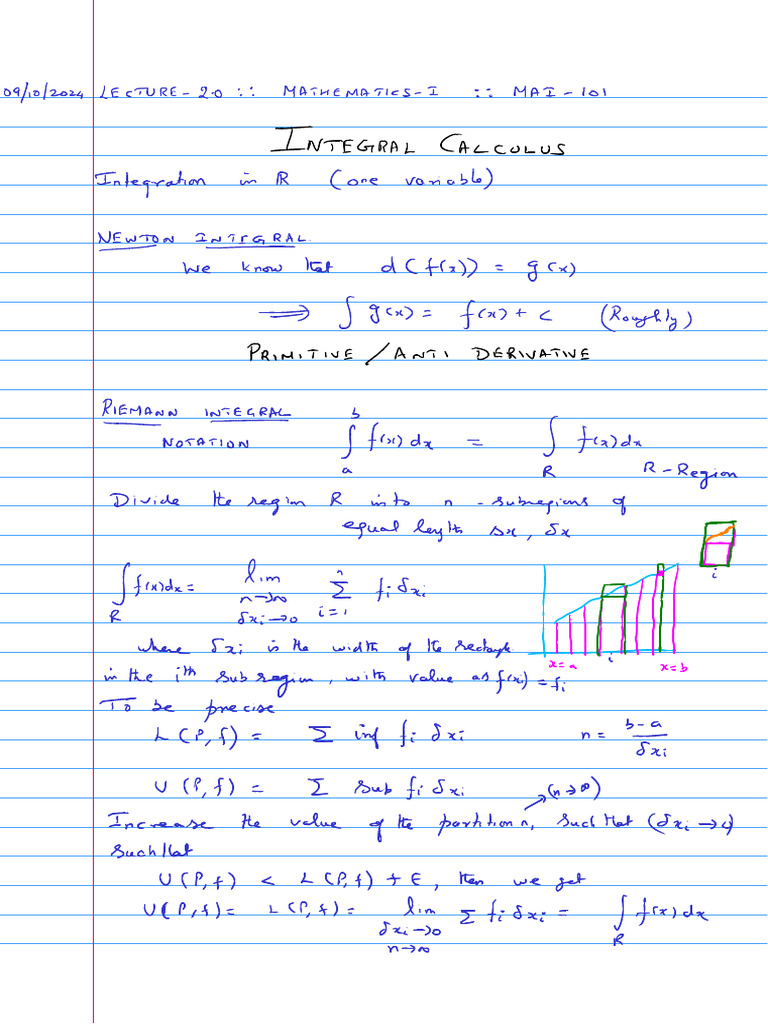 09/10/2024 LECTURE-20 :: MATHEMATICS-I :: MAI-101
INTEGRAL CALCULUS
Integration in R (one variable)
NEWTON INTEGRAL.
We know that d(f(x)) = g(x)
⟹ ∫ g(x) = f(x) + c (Roughly)
PRIMITIVE / ANTI DERIVATIVE
RIEMANN INTEGRAL
NOTATION ∫_a^b f(x) dx = ∫_R f(x) dx R - Region
Divide the region R into n - subregions of
equal length Δx, δx
∫_R f(x) dx = lim_{n→∞, δxi→0} Σ_{i=1}^n fi δxi
i
x=a i x=b
where δxi is the width of the rectangle
in the ith sub region, with value as f(x) = fi
To be precise
L(P,f) = Σ inf fi δxi n = (b-a)/δxi
U(P,f) = Σ sub fi δxi (n→∞)
Increase the value of the partition n, such that (δxi →
such that
U(P,f) < L(P,f) + ε, then we get
U(P,f) = L(P,f) = lim_{δxi→0, n→∞} Σ fi δxi = ∫_R f(x) dx